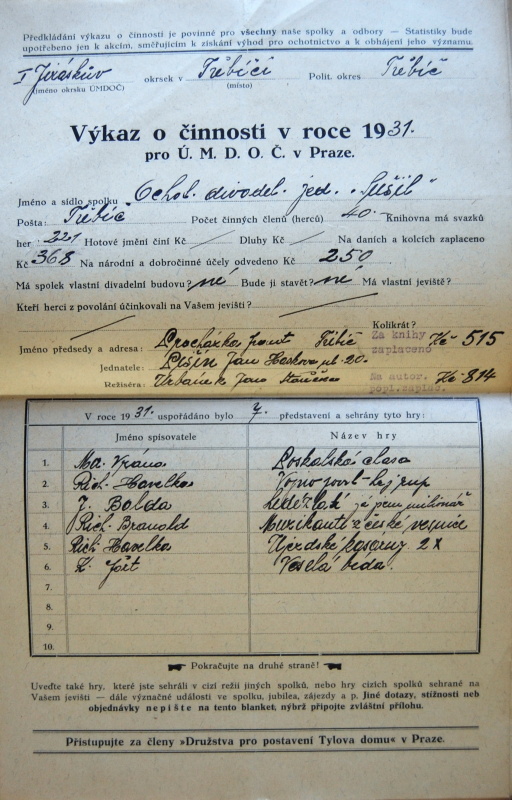 Předkládání výkazu o činnosti je povinné pro všechny naše spolky a odbory — Statistiky bude
upotřebeno jen k akcím, směřujícím k získání výhod pro ochotnictvo a k obhájení jeho významu.
I Jiráskův okrsek v Třebíči Polit. okres Třebíč
(jméno okrsku ÚMDOČ) (místo)
Výkaz o činnosti v roce 1931.
pro Ú. M. D. O. Č. v Praze.
Jméno a sídlo spolku Ochot. divadel. jed. „Sušil“
Pošta: Třebíč Počet činných členů (herců) 40. Knihovna má svazků
her: 221 Hotové jmění činí Kč Dluhy Kč Na daních a kolcích zaplaceno
Kč 368 Na národní a dobročinné účely odvedeno Kč 250
Má spolek vlastní divadelní budovu? né Bude ji stavět? né Má vlastní jeviště?
Kteří herci z povolání účinkovali na Vašem jevišti?
Kolikrát?
Za knihy
zaplaceno Kč 515
Jméno předsedy a adresa: Procházka Třebíč
Jednatele: Jan ul. 20.
Režiséra: Urbanek Jan
Na autor.
popl. zaplac. Kč 814
V roce 1931. uspořádáno bylo 7. představení a sehrány tyto hry:
Jméno spisovatele Název hry
1. Vrána
2. Rich. Havelka
3. J. Balda já jsem milionář
4. Rich. Branald Muzikanti z české vesnice
5. Rich. Havelka 2x
6. Veselá bída.
7.
8.
9.
10.
Pokračujte na druhé straně!
Uveďte také hry, které jste sehráli v cizí režii jiných spolků, nebo hry cizích spolků sehrané na
Vašem jevišti — dále význačné události ve spolku, jubilea, zájezdy a p. Jiné dotazy, stížnosti neb
objednávky nepište na tento blanket, nýbrž připojte zvláštní přílohu.
Přistupujte za členy »Družstva pro postavení Tylova domu« v Praze.